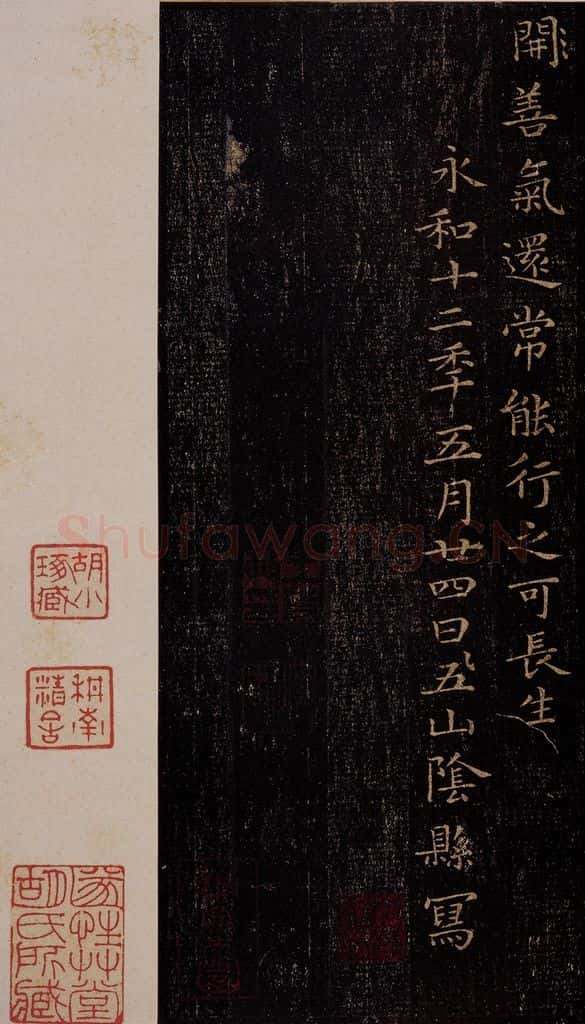 開善氣還常能行之可長生
永和十二秊五月廿四日五山陰縣寫
Shufawang.CN
胡小
琢臧
胡氏所臧